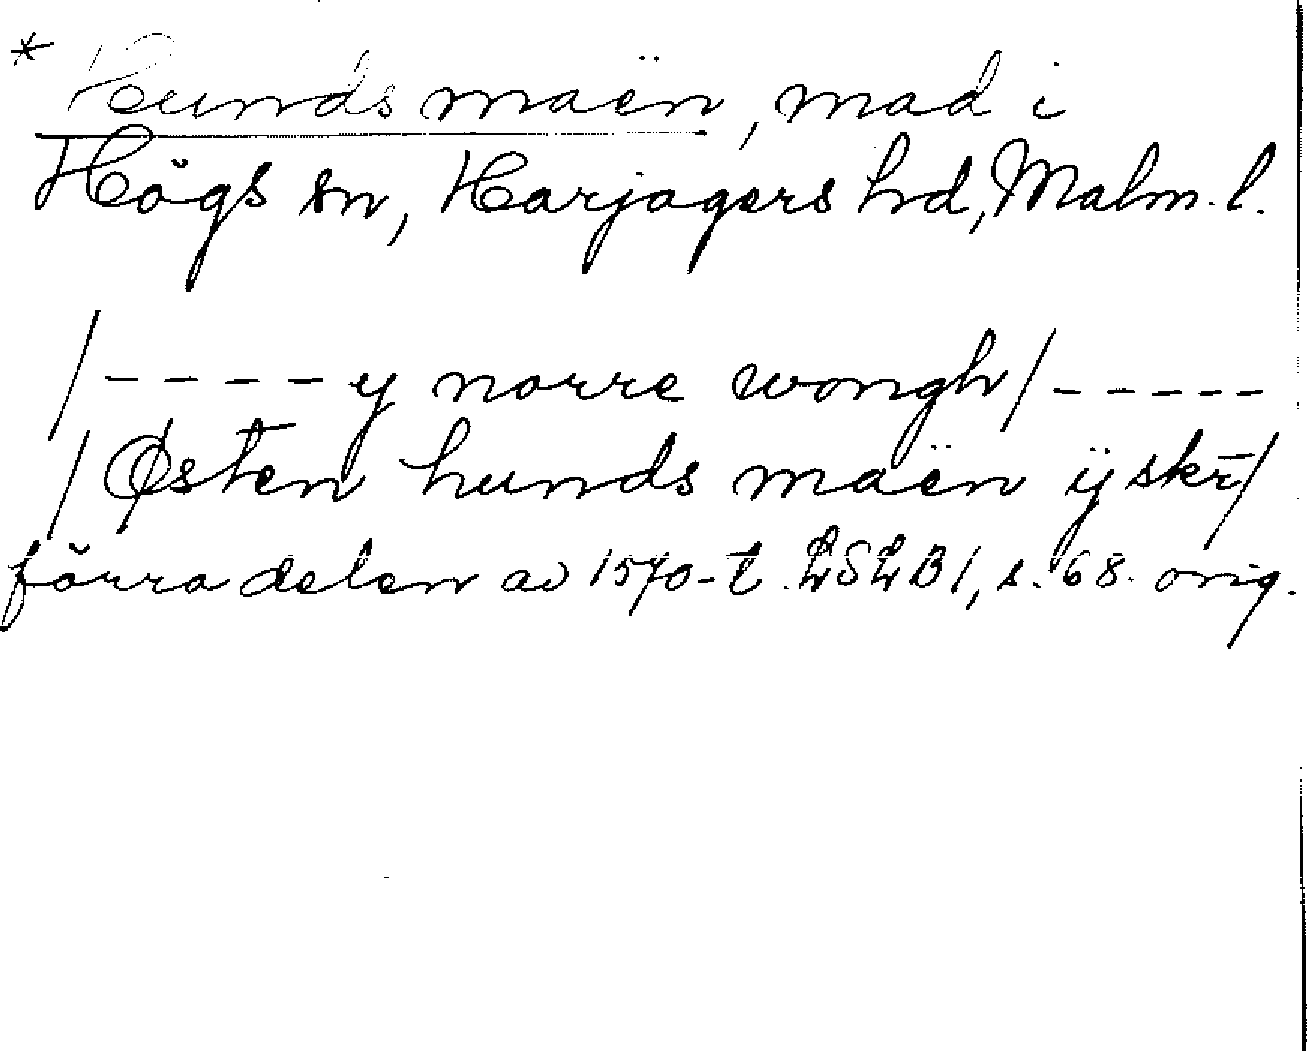 * Hunds maën, mad i
Högs sn, Harjagers hd, Malm. l.
/ - - - - y norre wongh / - - - - -
/ Østen hunds maën ÿ skr̄ /
förra delen av 1570-t. LSLB 1, s. 68. orig.